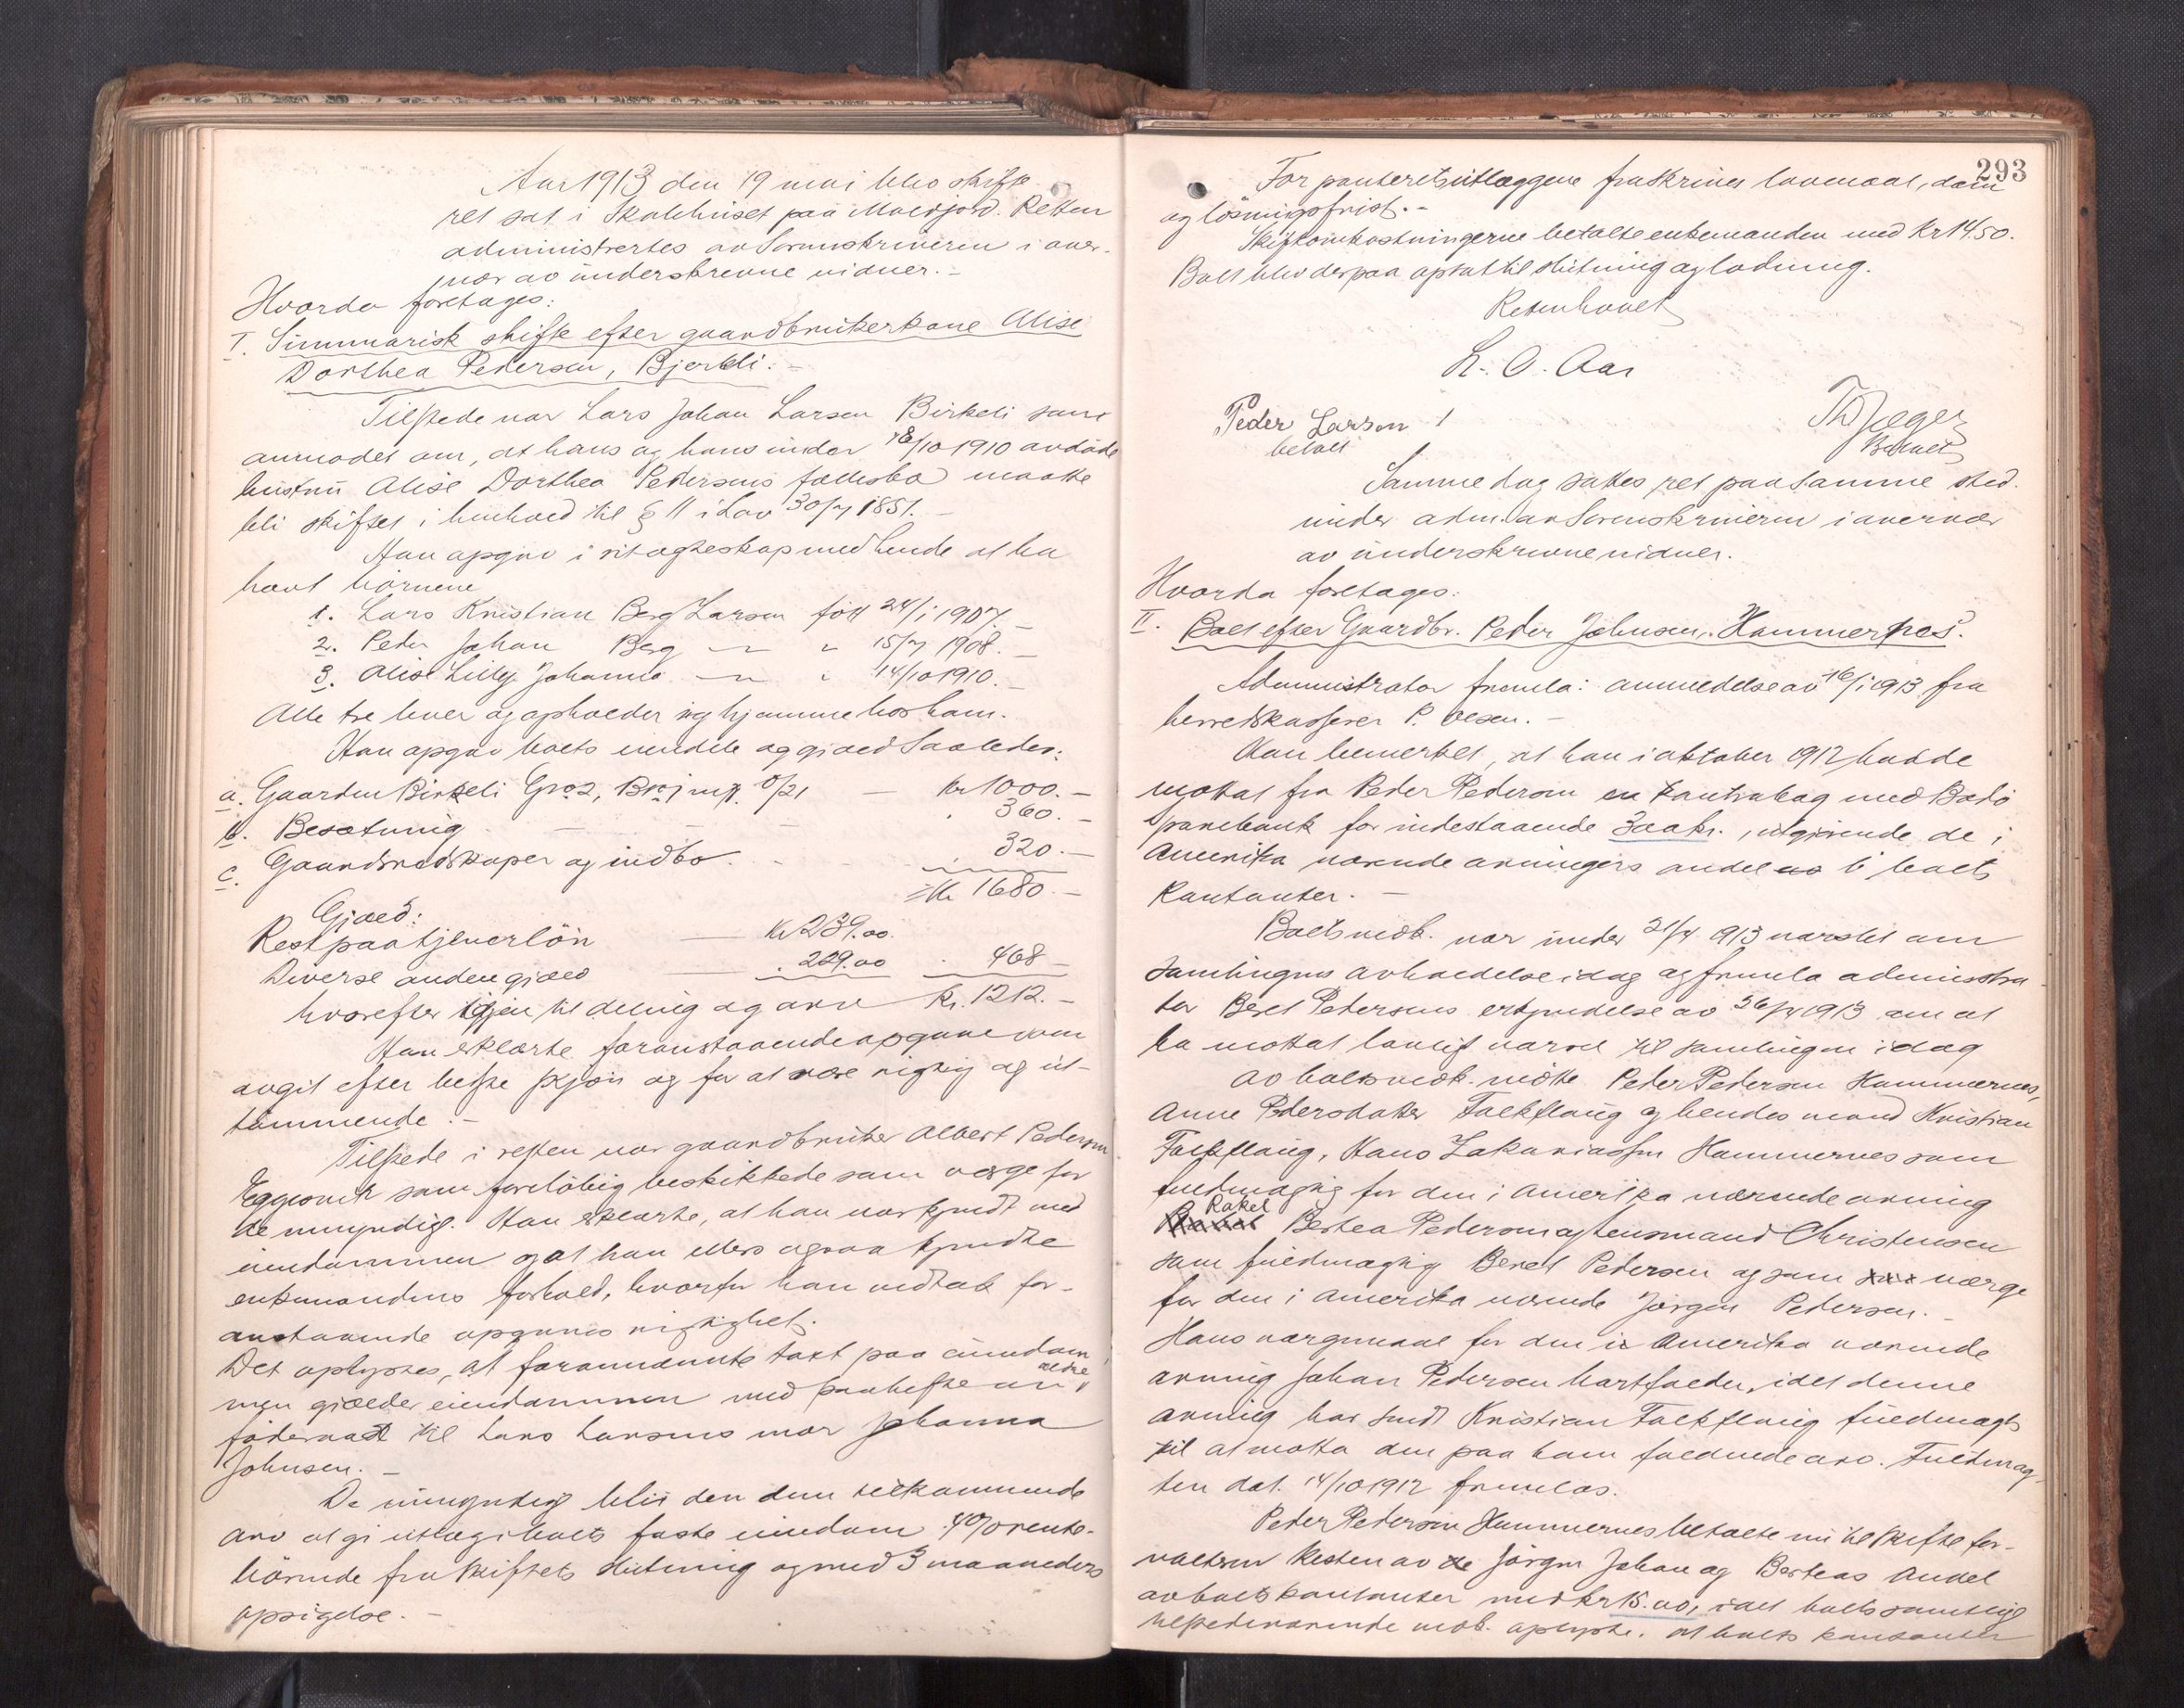 Aar 1913 den 19 mai blev skifte
ret sat i Skolehuset paa Misvær. Retten
administrertes av Sorenskriveren i over-
vær av underskrevne vidner. -
Hvorda foretages:
I. Summarisk skifte efter gaardbrukerkone Alise
Dorthea Pedersen, Bjerkli. -
Tilstede var Lars Johan Larsen Birkeli som
anmodet om, at hans og hans under 18/10 1910 avdøde
hustru Alise Dorthea Pedersens fællesbo maatte
bli skiftet i henhold til § 11 i Lov 30/7 1851. -
Han opgav i sit egteskap med hende at ha
havt børnene
1. Lars Kristian Berg Larsen født 24/1 1907. -
2. Peder Johan Berg — " — " 15/7 1908. -
3. Alise Lilly Johanna — " — " 14/10 1910. -
Alle tre lever og opholder sig hjemme hos ham.
Han opgav boets eiendele og gjæld saaledes:
a. Gaarden Birkeli Gno 2, Bno 1 0/21 — Kr 1000. -
b. Besætning — — — " 360. -
c. Gaardsredskaper og indbo. - - - " 320. -
= Kr 1680. -
Gjæld:
Rest paa tjenerløn — Kr 239.00
Diverse anden gjæld — " 229.00 " 468 -
hvorefter igjen til deling og arv Kr. 1212. -
Han erklærte foranstaaende opgave som
avgit efter beste skjøn og for at være rigtig og ut-
tømmende. -
Tilstede i retten var gaardbruker Albert Pedersen
som foreløbig beskikkede som verge for
de umyndige. Han erklærte, at han var kjendt med
eiendommen og at han ellers ogsaa kjendte
enkemandens forhold, hvorfor han vedtok for-
anstaaende opgaves rigtighet.
Det oplystes, at forannævnte takst paa eiendom
men gjælder eiendommen med paaheftende ældre
føderaad til Lars Larsens mor Johanna
Johnsen. -
De umyndige blir den dem tilkommende
arv at gi utlæg i boets faste eiendom 4% rente-
bærende fra skiftets slutning og med 3 maaneders
opsigelse. -
293
For panteretsutlæggene fraskrives lovmaal, dom
og løsningsfrist. -
Skifteomkostningerne betalte enkemanden med Kr 14.50.
Boet blev derpaa optat til slutning og lodning.
Retten hævet
L. O. Aar
Peder Larsen Th Jæger
betalt Betalt
Samme dag sattes ret paa samme sted
under adm. av Sorenskriveren i overvær
av underskrevne vidner.
Hvorda foretages:
II. Boet efter Gaardbr. Peder Johnsen, Hammernes.
Administrator fremla: anmeldelse av 16/1 1913 fra
herredskasserer P. Olsen. -
Han bemerket, at han i oktober 1912 hadde
mottat fra Peder Pedersen en kontrabog med Bodø
Sparebank for indestaaende 300 kr., utgjørende de i
Amerika værende arvingers andel i boets
kontanter. -
Boets vedk. var under 21/4 1913 varslet om
samlingens avholdelse idag og fremla administra
tor Beret Pedersens erkjendelse av 26/4 1913 om at
ha mottat lovlig varsel til samlingen idag
Av boets vedk. møtte Peder Pedersen Hammernes,
Anne Pedersdatter Falkflaug og hendes mand Kristian
Falkflaug, Hans Zakariassen Hammernes som
fuldmægtig for den i Amerika værende arving
Rakel
Bertea Pedersen og hens mand Christensen
som fuldmægtig Beret Pedersen og som værge
for den i Amerika værende Jørgen Pedersen. -
Hans værgemaal for den i Amerika værende
arving Johan Pedersen bortfalder, idet denne
arving har sendt Kristian Falkflaug fuldmagt
til at motta den paa ham faldende arv. Fuldmag-
ten dat. 14/10 1912 fremlas.
Peder Pedersen Hammernes betalte nu til skiftefor-
valteren Resten av Jørgen Johan og Berteas Andel
av boets kontanter med kr 15.00, idet boets samtlige
tilstedeværende vedk. oplyste, at boets kontanter